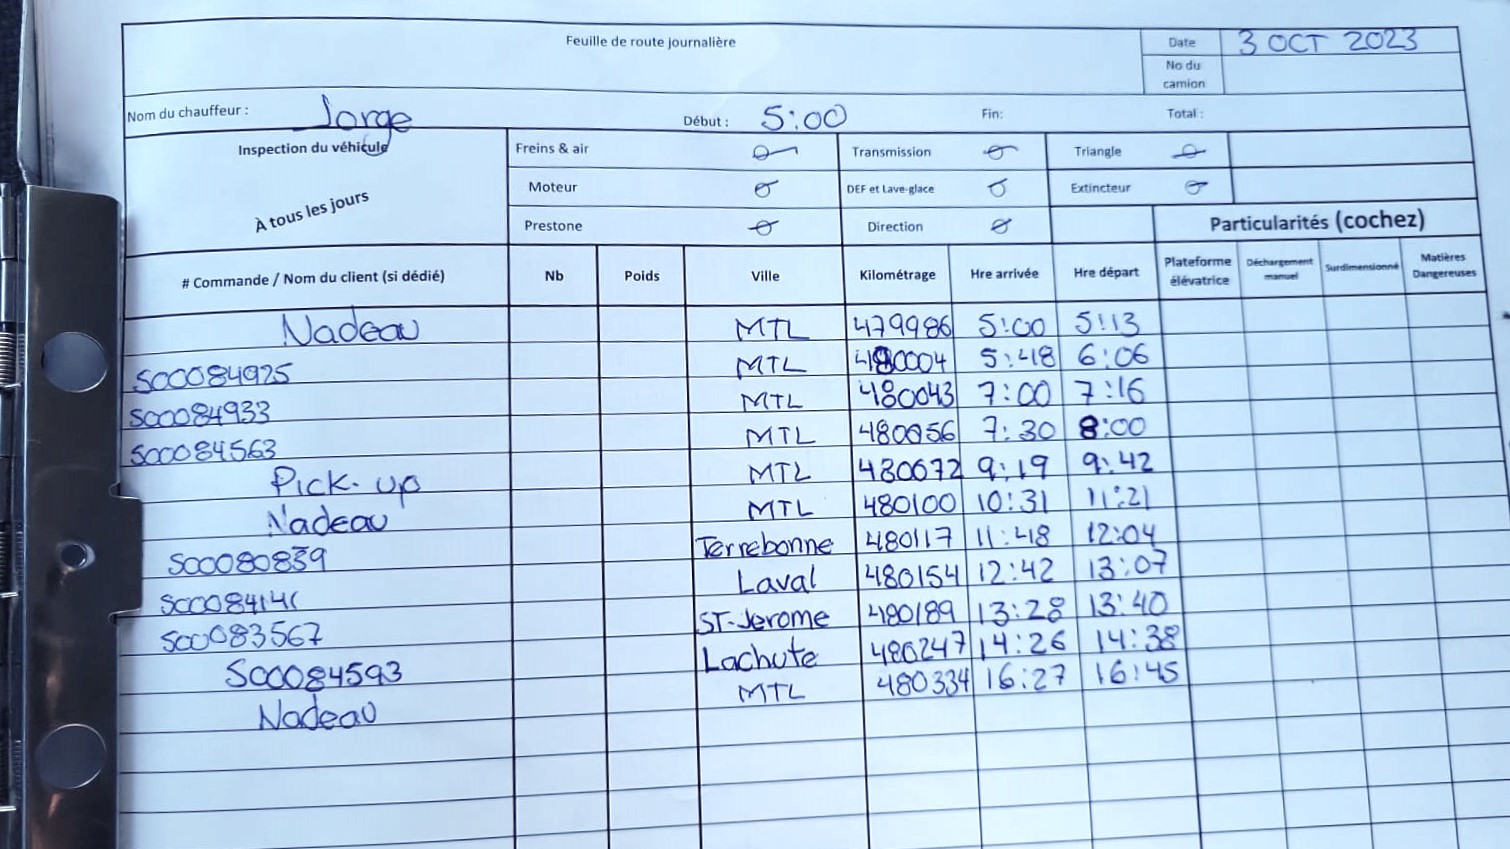 Feuille de route journalière
Date 3 OCT 2023
No du camion
Nom du chauffeur : Jorge Début : 5:00 Fin: Total :
Inspection du véhicule
À tous les jours
Freins & air Transmission Triangle
Moteur DEF et Lave-glace Extincteur
Prestone Direction
Particularités (cochez)
# Commande / Nom du client (si dédié) Nb Poids Ville Kilométrage Hre arrivée Hre départ Plateforme élévatrice Déchargement manuel Surdimensionné Matières Dangereuses
Nadeau MTL 479986 5:00 5:13
SO0084925 MTL 480004 5:48 6:06
SO0084933 MTL 480043 7:00 7:16
SO0084563 MTL 480056 7:30 8:00
Pick-up MTL 480072 9:19 9:42
Nadeau MTL 480100 10:31 11:21
SO0080839 Terrebonne 480117 11:48 12:04
SO0084141 Laval 480154 12:42 13:07
SO0083567 ST-Jerome 480189 13:28 13:40
SO0084593 Lachute 480247 14:26 14:38
Nadeau MTL 480334 16:27 16:45